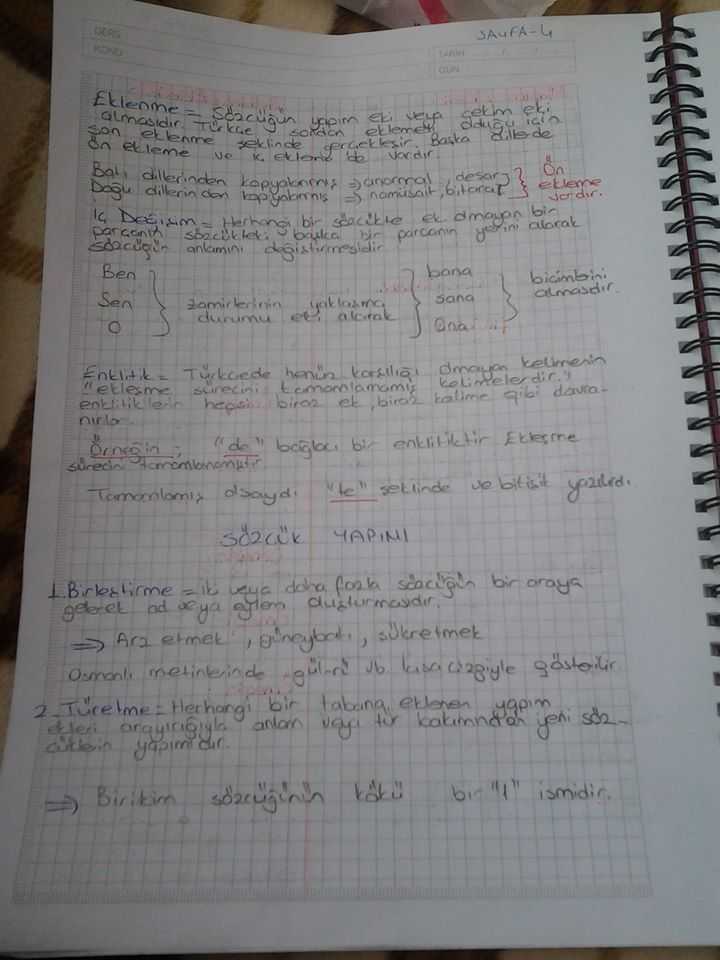 DERS
SAYFA-4
KONU
TARİH
GÜN
Eklenme = Sözcüğün yapım eki veya çekim eki
almasıdır. Türkçe sondan eklemeli olduğu için
son eklenme şeklinde gerçekleşir. Başka dillerde
ön ekleme ve iç ekleme de vardır.
Batı dillerinden kopyalanmış => anormal, desarj } Ön
Doğu dillerinden kopyalanmış => namüsait, bitaraf } ekleme
vardır.
İç Değişim = Herhangi bir sözcükte ek olmayan bir
parçanın sözcükteki başka bir parçanın yerini alarak
sözcüğün anlamını değiştirmesidir
Ben } bana } biçimbini
Sen } zamirlerinin yaklaşma } sana } almasıdır.
O } durumu eki alarak } Ona
Enklitik = Türkçede henüz karşılığı olmayan kelimenin
"ekleşme sürecini tamamlamamış kelimelerdir."
enklitiklerin hepsi biraz ek, biraz kelime gibi davra-
nırlar
Örneğin; "de" bağlacı bir enklitiktir Ekleşme
sürecin tamamlanamıştır.
Tamamlamış olsaydı "te" şeklinde ve bitişik yazılırdı.
SÖZCÜK YAPIMI
1. Birleştirme = iki veya daha fazla sözcüğün bir araya
gelerek ad veya eylem oluşturmasıdır.
=> Arz etmek, güneybatı, şükretmek
Osmanlı metinlerinde gül-rû vb kısa çizgiyle gösterilir
2. Türetme = Herhangi bir tabana eklenen yapım
ekleri arayıcığıyla anlam veya tür bakımından yeni söz-
cüklerin yapımıdır.
=> Birikim sözcüğünün kökü bir "1" ismidir.